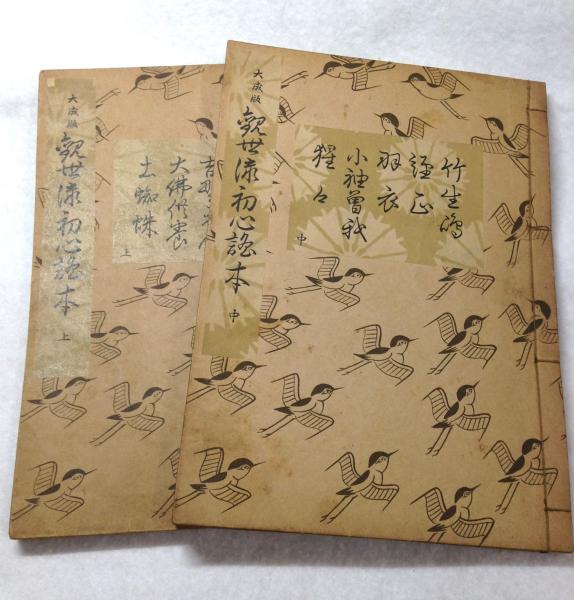 大成版
觀世流初心謠本
中
竹生島
經正
羽衣
小袖曾我
猩々
中
大成版
觀世流初心謠本
上
吉野天人
大佛供養
土蜘蛛
上